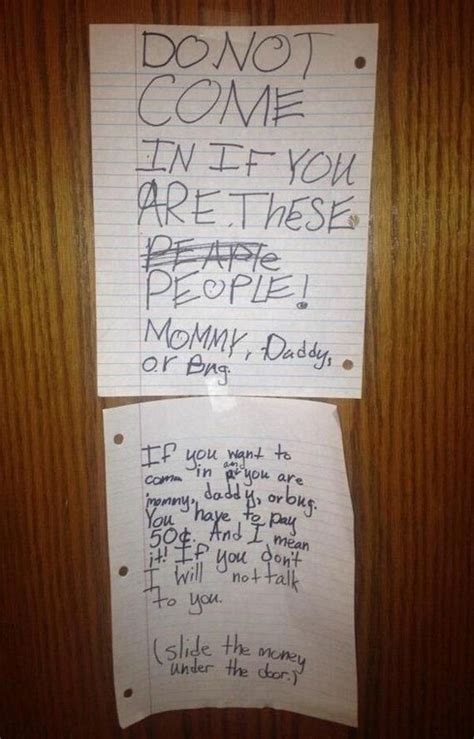 DO NOT
COME
IN IF YOU
ARE THESE
PEAPle
PEOPLE!
MOMMY, Daddy,
or Bug.
If you want to
com in and you are
mommy, daddy, or bug.
You have to pay
50¢. And I mean
it! If you don't
I will not talk
to you.
(slide the money
under the door.)